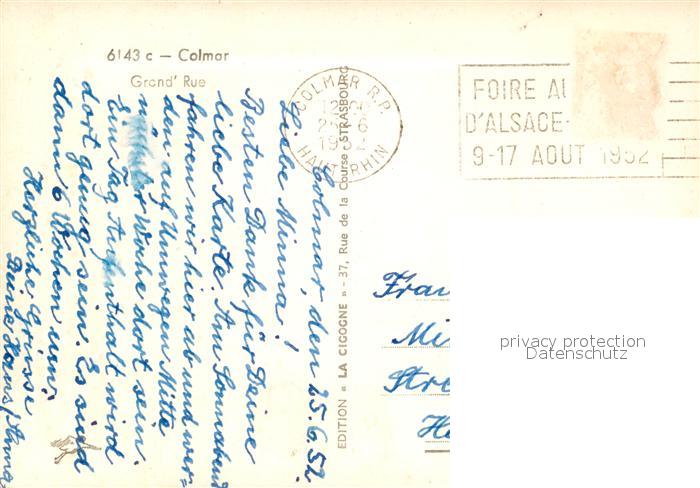 6143 c — Colmar
Grand' Rue
COLMAR R.P.
HAUT-RHIN
FOIRE
D'ALSACE-
9-17 AOUT 1952
EDITION « LA CIGOGNE » - 37, Rue de la Course - STRASBOURG
Colmar, den 25.6.52.
Liebe Minna!
Besten Dank für Deine
liebe Karte. Am Sonnabend
fahren wir hier ab und wer=
den auf Umwegen Mitte
nächster Woche dort sein.
Ein Tag Aufenthalt wird
dort genug sein. Es sind
dann 6 Wochen um.
Herzliche Grüsse
Deine Hans/Anna
Frau
Mi
Stre
Ha
privacy protection
Datenschutz